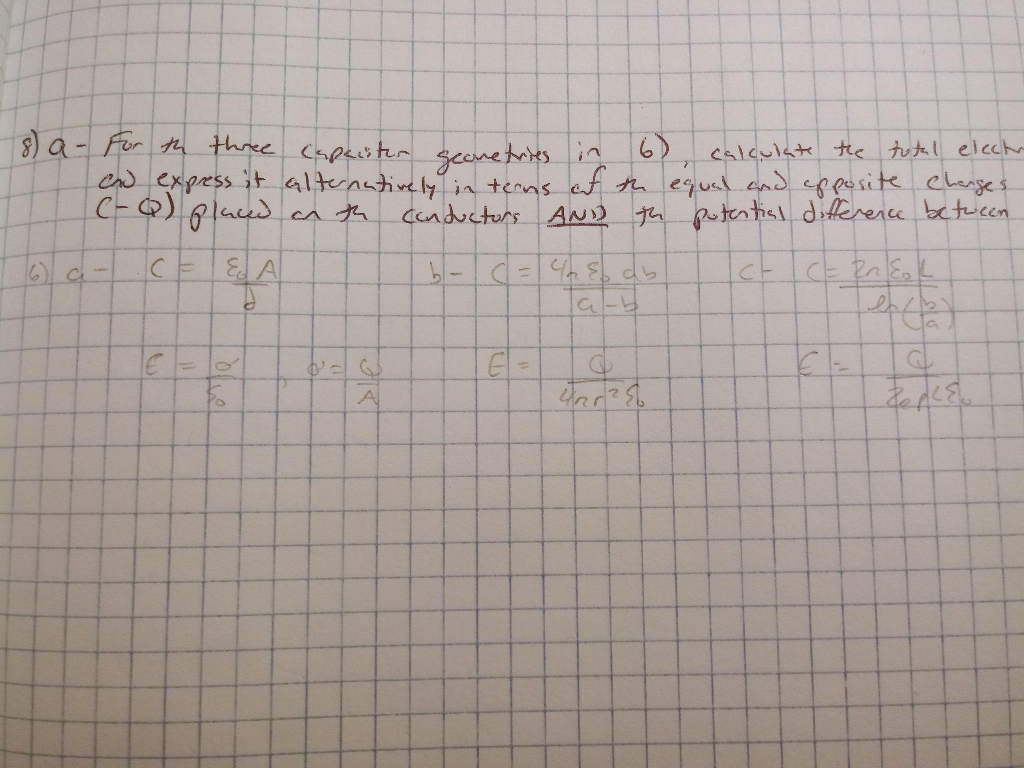 8) a - For th three capacitor geometries in 6), calculate the total electr
and express it alternatively in terms of th equal and opposite charges
(-Q) placed on th conductors AND th potential difference between
6) a - C = ε₀ A / d b - C = 4π ε₀ ab / a - b c - C = 2π ε₀ L / ln(b/a)
E = σ / ε₀ , σ = Q / A E = Q / 4πr²ε₀ E = Q /